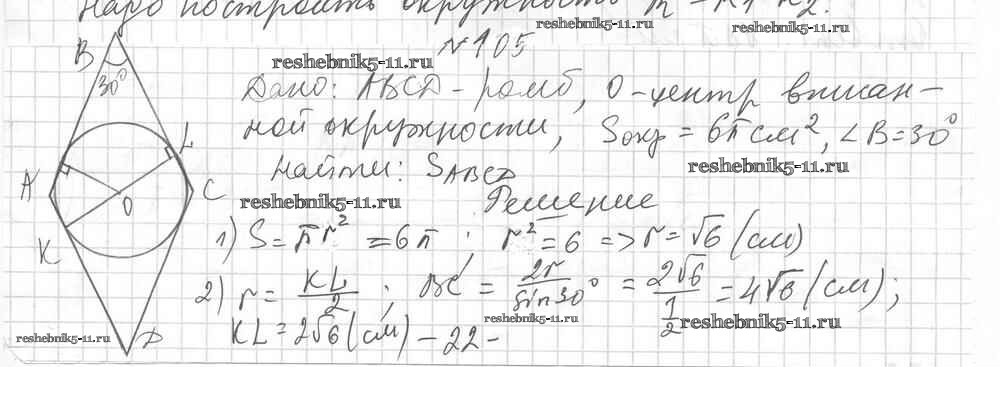 Надо построить окружность
reshebnik5-11.ru
reshebnik5-11.ru
№ 105
reshebnik5-11.ru
Дано: ABCD – ромб, O – центр вписан-
ной окружности, Sокр = 6π см², ∠B = 30°
reshebnik5-11.ru
Найти: SABCD
reshebnik5-11.ru
Решение
1) S = πr² = 6π ; r² = 6 => r = √6 (см)
2) r = KL/2 ; BC = 2r/sin30° = 2√6/(1/2) = 4√6 (см);
reshebnik5-11.ru
reshebnik5-11.ru
KL = 2√6 (см)
– 22 –
reshebnik5-11.ru
B
30°
L
A
O
C
K
D